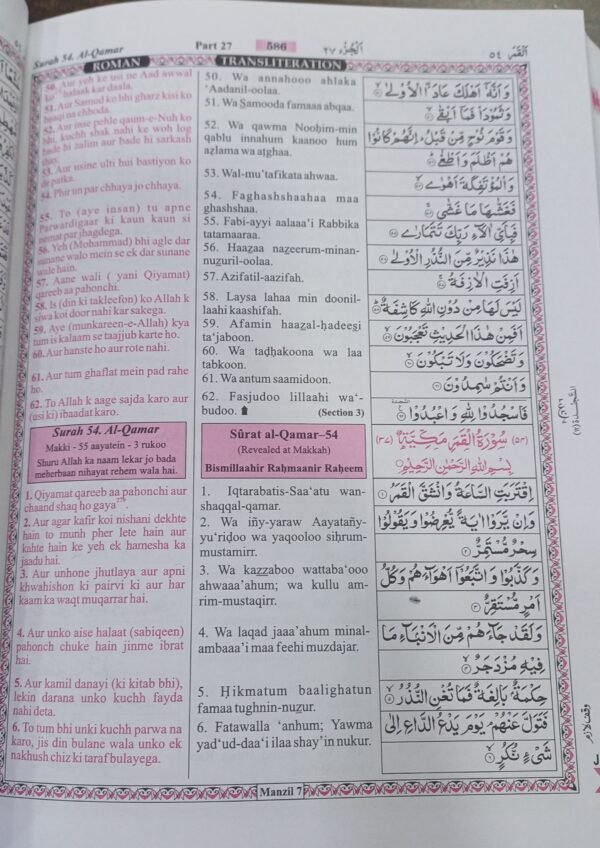 Surah 54. Al-Qamar
Part 27
586
اَلْجُزْءُ ٢٧
اَلْقَمَر ٥٤
ROMAN
TRANSLITERATION
50. Aur yeh ke usi ne Aad awwal
ko halaak kar daala.
51. Aur Samood ko bhi gharz kisi ko
baaqi na chhoda.
52. Aur inse pehle qaum-e-Nuh ko
bhi, kuchh shak nahi ke woh log
bade hi zalim aur bade hi sarkash
thay.
53. Aur usine ulti hui bastiyon ko
de patka.
54. Phir un par chhaya jo chhaya.
55. To (aye insan) tu apne
Parwardigaar ki kaun kaun si
nemat par jhagdega.
56. Yeh (Mohammad) bhi agle dar
sunane walo mein se ek dar sunane
wale hain.
57. Aane wali ( yani Qiyamat)
qareeb aa pahonchi.
58. Is (din ki takleefon) ko Allah k
siwa koi door nahi kar sakega.
59. Aye (munkareen-e-Allah) kya
tum is kalaam se taajjub karte ho.
60. Aur hanste ho aur rote nahi.
61. Aur tum ghaflat mein pad rahe
ho.
62. To Allah k aage sajda karo aur
(usi ki) ibaadat karo.
Surah 54. Al-Qamar
Makki - 55 aayatein - 3 rukoo
Shuru Allah ka naam lekar jo bada
meherbaan nihayat rehem wala hai.
1. Qiyamat qareeb aa pahonchi aur
chaand shaq ho gaya
2. Aur agar kafir koi nishani dekhte
hain to munh pher lete hain aur
kahte hain ke yeh ek hamesha ka
jaadu hai.
3. Aur unhone jhutlaya aur apni
khwahishon ki pairvi ki aur har
kaam ka waqt muqarrar hai.
4. Aur unko aise halaat (sabiqeen)
pahonch chuke hain jinme ibrat
hai.
5. Aur kamil danayi (ki kitab bhi),
lekin darana unko kuchh fayda
nahi deta.
6. To tum bhi unki kuchh parwa na
karo, jis din bulane wala unko ek
nakhush chiz ki taraf bulayega.
50. Wa annahooo ahlaka
'Aadanil-oolaa.
51. Wa Samooda famaaa abqaa.
52. Wa qawma Nooḥim-min
qablu innahum kaanoo hum
aẓlama wa aṭghaa.
53. Wal-mu'tafikata ahwaa.
54. Faghashshaahaa maa
ghashshaa.
55. Fabi-ayyi aalaaa'i Rabbika
tatamaaraa.
56. Haaẕaa naẕeerum-minan-
nuẕuril-oolaa.
57. Azifatil-aazifah.
58. Laysa lahaa min doonil-
laahi kaashifah.
59. Afamin haaẕal-ḥadeesi
ta'jaboon.
60. Wa taḍḥakoona wa laa
tabkoon.
61. Wa antum saamidoon.
62. Fasjudoo lillaahi wa'-
budoo.
(Section 3)
Sûrat al-Qamar–54
(Revealed at Makkah)
Bismillaahir Raḥmaanir Raḥeem
1. Iqtarabatis-Saa'atu wan-
shaqqal-qamar.
2. Wa iñy-yaraw Aayatañy-
yu'riḍoo wa yaqooloo siḥrum-
mustamirr.
3. Wa kaẕẕaboo wattaba'ooo
ahwaaa'ahum; wa kullu am-
rim-mustaqirr.
4. Wa laqad jaaa'ahum minal-
ambaaa'i maa feehi muzdajar.
5. Ḥikmatum baalighatun
famaa tughnin-nuẕur.
6. Fatawalla 'anhum; Yawma
yad'ud-daa'i ilaa shay'in nukur.
وَاَنَّهٗۤ اَهْلَكَ عَادَا اۨلْاُوْلٰى ۙ
وَثَمُوْدَا۟ فَمَاۤ اَبْقٰى ۙ
وَقَوْمَ نُوْحٍ مِّنْ قَبْلُ ؕ اِنَّهُمْ كَانُوْا
هُمْ اَظْلَمَ وَاَطْغٰى ؕ
وَالْمُؤْتَفِكَةَ اَهْوٰى ۙ
فَغَشّٰىهَا مَا غَشّٰى ۚ
فَبِاَىِّ اٰلَآءِ رَبِّكَ تَتَمَارٰى
هٰذَا نَذِيْرٌ مِّنَ النُّذُرِ الْاُوْلٰى
اَزِفَتِ الْاٰزِفَةُ ۚ
لَيْسَ لَهَا مِنْ دُوْنِ اللّٰهِ كَاشِفَةٌ ؕ
اَفَمِنْ هٰذَا الْحَدِيْثِ تَعْجَبُوْنَ ۙ
وَتَضْحَكُوْنَ وَلَا تَبْكُوْنَ ۙ
وَاَنْتُمْ سٰمِدُوْنَ
فَاسْجُدُوْا لِلّٰهِ وَاعْبُدُوْا
(٥٤) سُوْرَةُ الْقَمَرِ مَكِّيَّةٌ (٣٧)
بِسْمِ اللّٰهِ الرَّحْمٰنِ الرَّحِيْمِ
اِقْتَرَبَتِ السَّاعَةُ وَانْشَقَّ الْقَمَرُ
وَاِنْ يَّرَوْا اٰيَةً يُّعْرِضُوْا وَيَقُوْلُوْا
سِحْرٌ مُّسْتَمِرٌّ
وَكَذَّبُوْا وَاتَّبَعُوْۤا اَهْوَآءَهُمْ وَكُلُّ
اَمْرٍ مُّسْتَقِرٌّ
وَلَقَدْ جَآءَهُمْ مِّنَ الْاَنْۢبَآءِ مَا
فِيْهِ مُزْدَجَرٌ ۙ
حِكْمَةٌۢ بَالِغَةٌ فَمَا تُغْنِ النُّذُرُ ۙ
فَتَوَلَّ عَنْهُمْ ۘ يَوْمَ يَدْعُ الدَّاعِ اِلٰى
شَىْءٍ نُّكُرٍ ۙ
Manzil 7